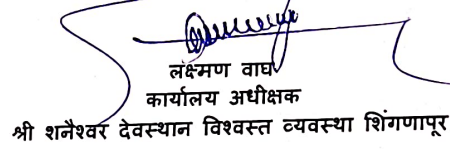 लक्ष्मण वाघ
कार्यालय अधीक्षक
श्री शनैश्वर देवस्थान विश्वस्त व्यवस्था शिंगणापूर